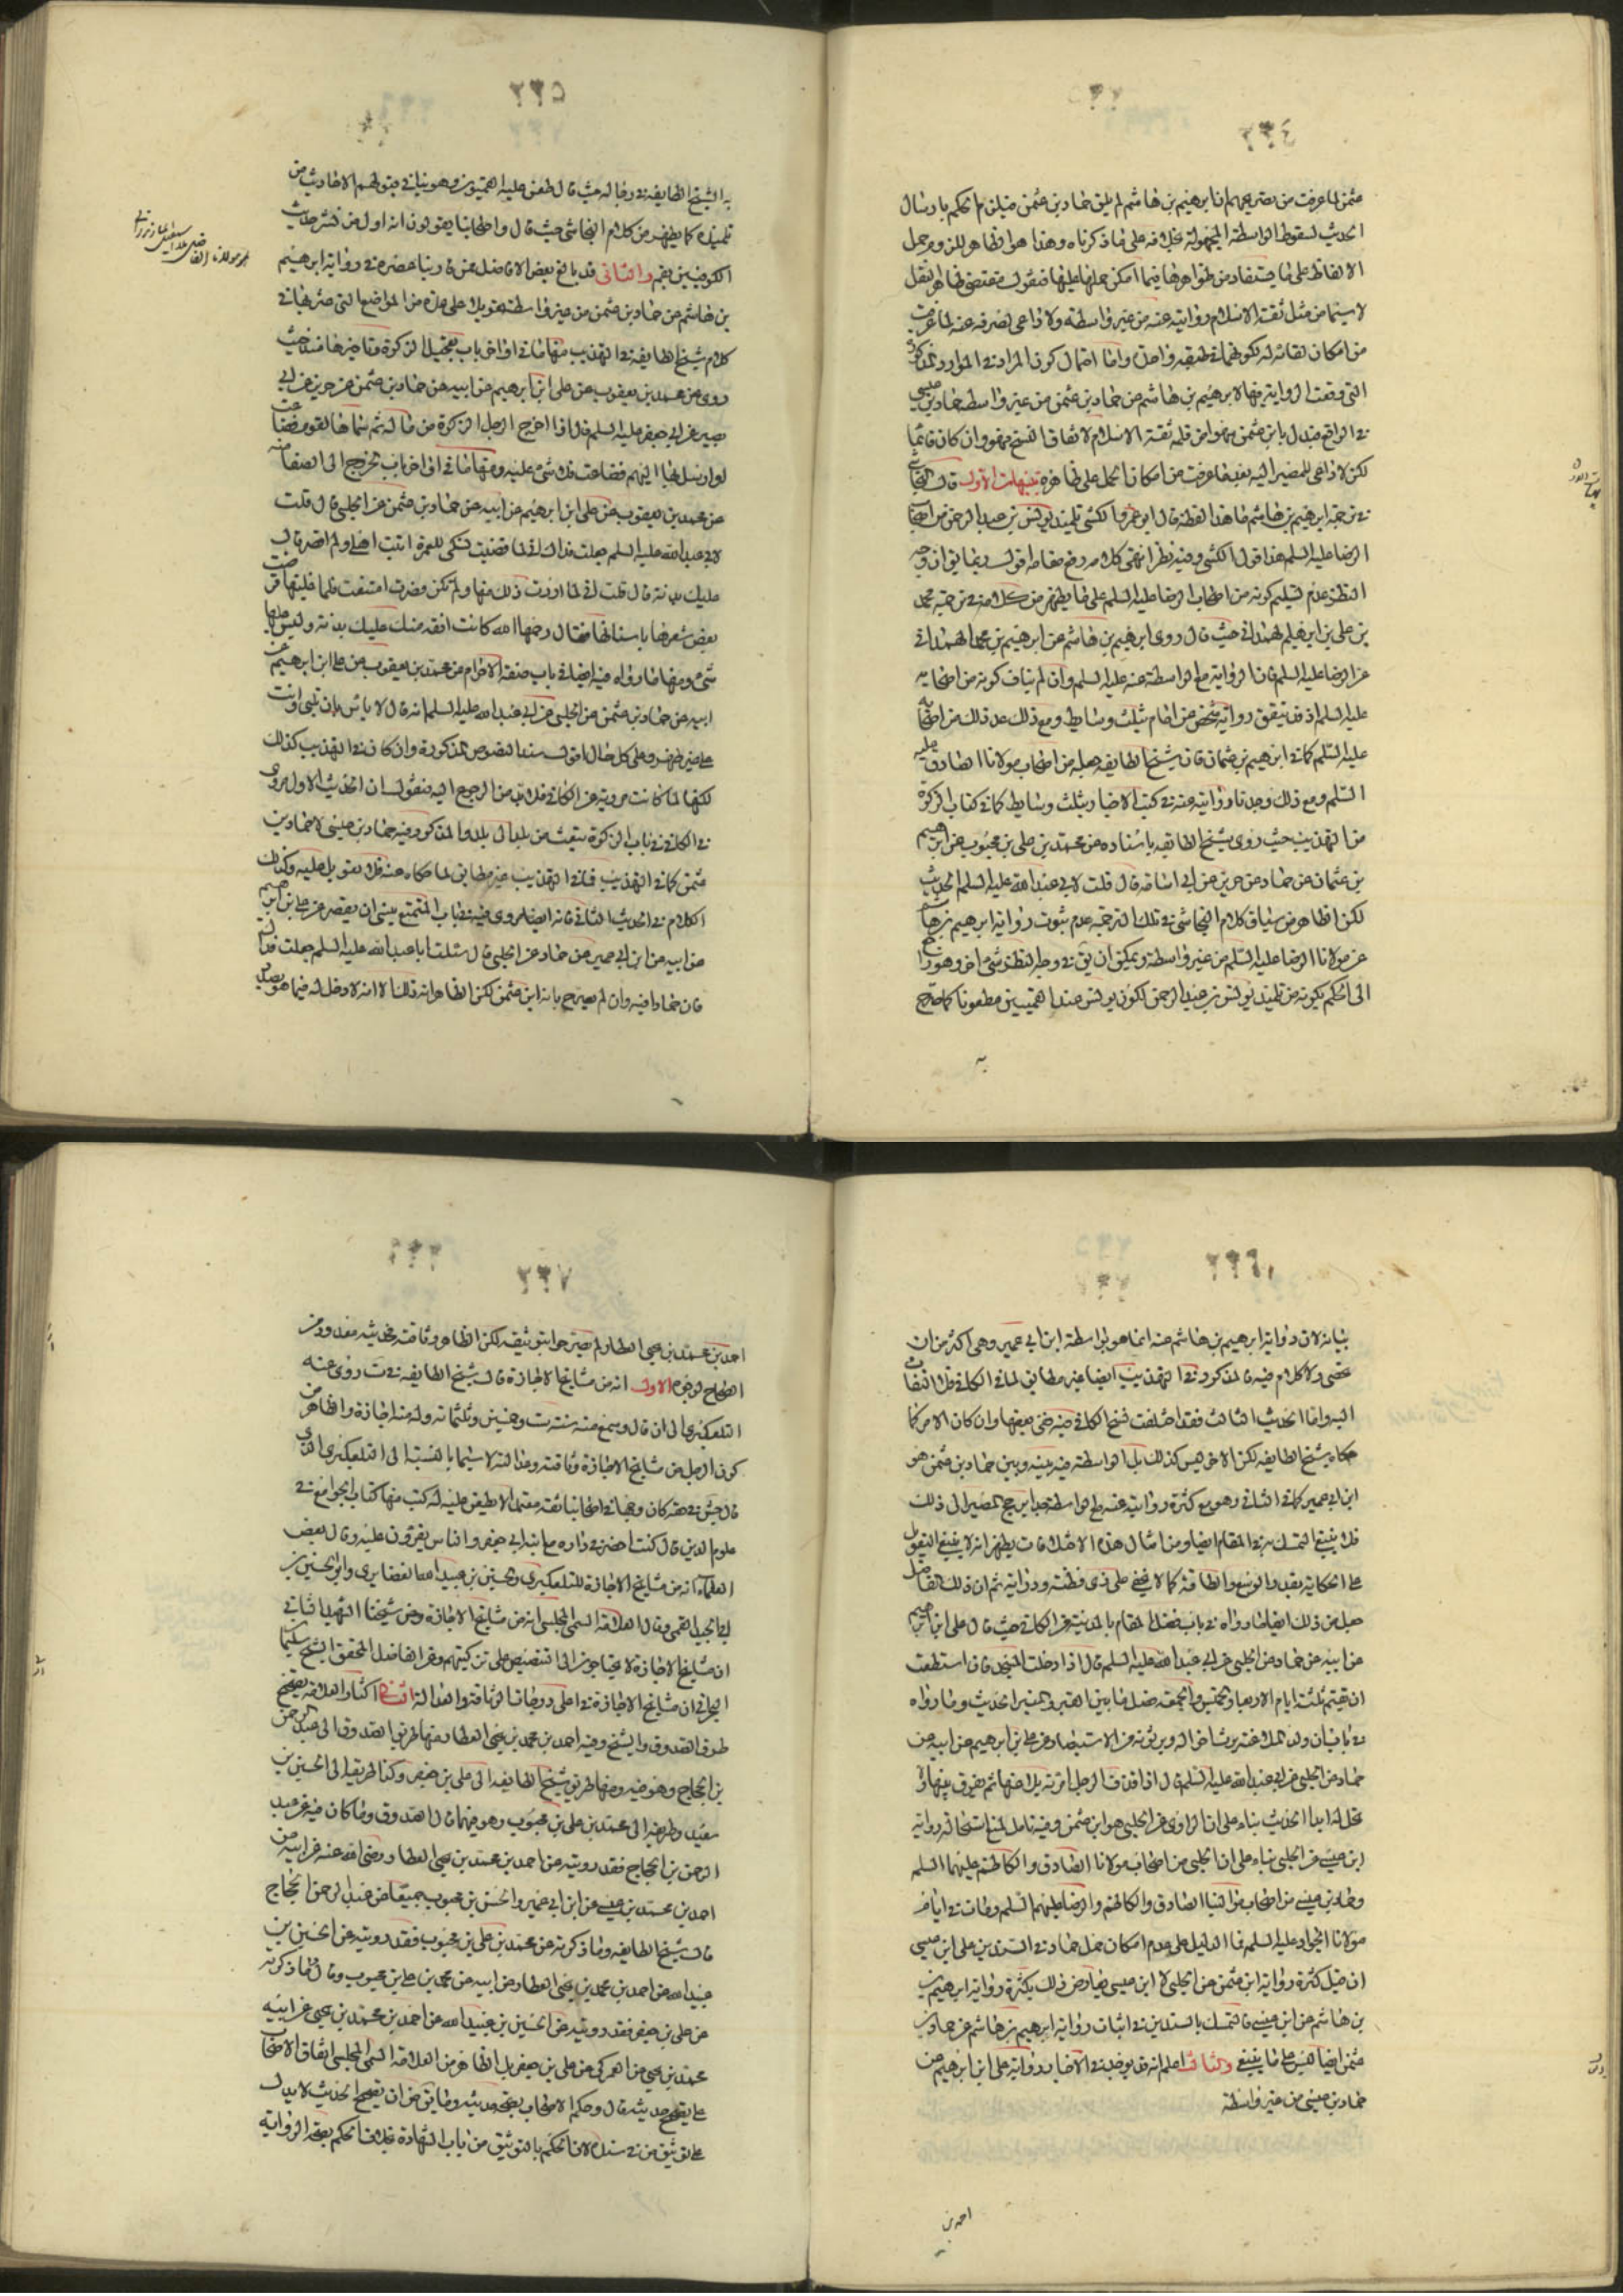 ٢٣٤
عثمن لما عرفت من تصريحهم ان ابرهيم بن هاشم لم يلق حماد بن عثمن فيلزم الحكم بارسال
الحديث لسقوط الواسطة المجهولة بخلافه على ما ذكرناه وهذا هو الظاهر للزوم حمل
الالفاظ على ما يستفاد من ظواهرها فيما امكن حملها عليها فنقول مقتضى ظاهر النقل
لا سيما من مثل ثقة الاسلام روايته عنه من غير واسطة ولا داعي لصرفه عنه لما عرفت
من امكان لقائه له لكونهما في طبقة واحدة واما احتمال كون المراد في الموارد المذكورة
التي وقعت الرواية فيها لابرهيم بن هاشم عن حماد بن عثمن من غير واسطة حماد بن عيسى
في الواقع فبدل بابن عثمن سهوا من قلم ثقة الاسلام لاتفاق النسخ فهو وان كان قائما
لكن لا داعي للمصير اليه بعد ما عرفت من امكان الحمل على ظاهره تنبيهات الاول قال النجاشي
في ترجمة ابرهيم بن هاشم ما هذا لفظه قال ابو عمرو الكشي تلميذ يونس بن عبد الرحمن من اصحاب
الرضا عليه السلم هذا قول الكشي وفيه نظر انتهى كلامه رفع مقامه اقول ربما يق ان وجه
النظر عدم تسليم كونه من اصحاب الرضا عليه السلم على ما يظهر من كلامه في ترجمة محمد
بن علي بن ابرهيم الهمداني حيث قال روى ابرهيم بن هاشم عن ابرهيم بن محمد الهمداني
عن الرضا عليه السلم فان الرواية مع الواسطة عنه عليه السلم وان لم يناف كونه من اصحابه
عليه السلم اذ قد يتفق رواية شخص من امام بثلث وسايط ومع ذلك عد ذلك من اصحابه
عليه السلم كما في ابرهيم بن عثمان فان شيخ الطايفه جعله من اصحاب مولانا الصادق عليه
السلم ومع ذلك وجدنا روايته عنه في كتب الاخبار بثلث وسايط كما في كتاب الزكوة
من التهذيب حيث روى شيخ الطايفه باسناده عن محمد بن علي بن محبوب عن ابرهيم
بن عثمان عن حماد عن حريز عن ابي اسامة قال قلت لابي عبد الله عليه السلم الحديث
لكن الظاهر من سياق كلام النجاشي في تلك الترجمة عدم ثبوت رواية ابرهيم بن هاشم
عن مولانا الرضا عليه السلم من غير واسطة ويمكن ان يق في وجه النظر شئ اخر وهو راجع
الى الحكم بكونه من تلميذ يونس بن عبد الرحمن لكون يونس عند القميين مطعونا كما صرح
به
٢٣٥
به الشيخ الطايفه في رجاله حيث قال طعن عليه القميون وهو ينافي قبولهم الاحاديث من
تلميذه كما يظهر من كلام النجاشي حيث قال واصحابنا يقولون انه اول من نشر حديث
الكوفيين بقم والثاني قد بالغ بعض الافاضل ممن قارب عصره في رواية ابرهيم
بن هاشم عن حماد بن عثمن من غير واسطة تعويلا على عدة من المواضع التي عثر بها في
كلام شيخ الطايفه في التهذيب منها ما في اواخر باب تعجيل الزكوة وتاخيرها عنه حيث
روى عن محمد بن يعقوب عن علي ابن ابرهيم عن ابيه عن حماد بن عثمن عن حريز عن ابي
بصير عن ابي جعفر عليه السلم قال اذا اخرج الرجل الزكوة من ماله ثم سماها لقوم فضاعت
او ارسل بها اليهم فضاعت فلا شئ عليه ومنها ما في اواخر باب الخروج الى الصفا
عن محمد بن يعقوب عن علي ابن ابرهيم عن ابيه عن حماد بن عثمن عن الحلبي قال قلت
لابي عبد الله عليه السلم جعلت فداك اني لما قضيت نسكي للعمرة اتيت اهلي ولم اقصر قال
عليك بدنة قال قلت اني لما اردت ذلك منها ولم تكن قصرت امتنعت فلما غلبتها قرضت
بعض شعرها باسنانها فقال رحمها الله كانت افقه منك عليك بدنة وليس عليها
شئ ومنها ما رواه فيه ايضا في باب صفة الاحرام عن محمد بن يعقوب عن علي ابن ابرهيم عن
ابيه عن حماد بن عثمن عن الحلبي عن ابي عبد الله عليه السلم انه قال لا باس بان تلبي وانت
على غير طهر وعلى كل حال اقول سند النصوص المذكورة وان كان في التهذيب كذلك
لكنها لما كانت مروية عن الكافي فلا بد من الرجوع اليه فنقول ان الحديث الاول مروي
في الكافي في باب الزكوة تبعث من بلد الى بلد والمذكور فيه حماد بن عيسى لا حماد بن
عثمن كما في التهذيب فما في التهذيب غير مطابق لما حكاه عنه فلا تعويل عليه وكذلك
الكلام في الحديث الثاني فانه ايضا مروي فيه في باب المتمتع ينسى ان يقصر عن علي بن ابرهيم
عن ابيه عن ابن ابي عمير عن حماد عن الحلبي قال سئلت ابا عبد الله عليه السلم جعلت فداك
فان حمادا فيه وان لم يصرح بانه ابن عثمن لكن الظاهر انه ذلك الا انه لا دخل له فيما هو بصدد
٢٣٦
بيانه لان رواية ابرهيم بن هاشم عنه انما هو بواسطة ابن ابي عمير وهي اكثر من ان
تحصى ولا كلام فيه فالمذكور في التهذيب ايضا غير مطابق لما في الكافي فلا التفات
اليه واما الحديث الثالث فقد اختلفت نسخ الكافي فيه ففي بعضها وان كان الامر كما
حكاه شيخ الطايفه لكن الاخر ليس كذلك بل الواسطة فيه بينه وبين حماد بن عثمن هو
ابن ابي عمير كما في الثاني وهو مع كثرة روايته عنه مع الواسطة جدا يرجح المصير الى ذلك
فلا ينبغي التمسك به في المقام ايضا ومن امثال هذه الاختلافات يظهر انه لا ينبغي التعويل
على الحكاية بقدر الوسع والطاقة كما لا يخفى على ذي فطنة ودراية ثم ان ذلك الفاضل
جعل من ذلك ايضا ما رواه في باب فضل المقام بالمدينة عن الكافي حيث قال علي ابن ابرهيم
عن ابيه عن حماد عن الحلبي عن ابي عبد الله عليه السلم قال اذا دخلت المسجد فان استطعت
ان تقيم ثلثة ايام الاربعا والخميس والجمعة فصل ما بين القبر والمنبر الحديث وما رواه
في باب ان ولد الملاعنة يرث اخواله ويرثونه من الاستبصار عن علي بن ابرهيم عن ابيه عن
حماد عن الحلبي عن ابي عبد الله عليه السلم قال اذا قذف الرجل امرته يلاعنها ثم يفرق بينهما ولا
تحل له ابدا الحديث بناء على ان الراوي عن الحلبي هو ابن عثمن وفيه تامل لمنع استحالة رواية
ابن عيسى عن الحلبي بناء على ان الحلبي من اصحاب مولانا الصادق والكاظم عليهما السلم
وحماد بن عيسى من اصحاب موالينا الصادق والكاظم والرضا عليهم السلم ومات في ايام
مولانا الجواد عليه السلم فما الدليل على عدم امكان حمل حماد في السندين على ابن عيسى
ان قيل كثرة رواية ابن عثمن عن الحلبي لا ابن عيسى يعارض ذلك بكثرة رواية ابرهيم بن
بن هاشم عن ابن عيسى فالتمسك بالسندين في اثبات رواية ابرهيم بن هاشم عن حماد بن
عثمن ايضا ليس على ما ينبغي والثالث اعلم انه قد يوجد في الاخبار رواية علي ابن ابرهيم عن
حماد بن عيسى من غير واسطة
احمد بن
٢٣٧
احمد بن محمد بن يحيى العطار لم يصرحوا بتوثيقه لكن الظاهر وثاقته فحديثه معدود من
الصحاح لوجوه الاول انه من مشايخ الاجازة قال شيخ الطايفه في ست روى عنه
التلعكبري الى ان قال وسمع منه سنة ست وخمسين وثلثمائة وله منه اجازة والظاهر من
كون الرجل من مشايخ الاجازة وثاقته وعدالته لا سيما بالنسبة الى التلعكبري الذي
قال جش في حقه كان وجها في اصحابنا ثقة معتمدا لا يطعن عليه له كتب منها كتاب الجوامع في
علوم الدين قال كنت احضر في داره مع ابنه ابي جعفر والناس يقرؤن عليه وقال بعض
العلماء انه من مشايخ الاجازة للتلعكبري والحسين بن عبيد الله الغضايري وابي الحسين بن
ابي الجيد القمي وقال العلامة السمي المجلسي انه من مشايخ الاجازة وعن شيخنا الشهيد الثاني
ان مشايخ الاجازة لا يحتاجون الى التنصيص على تزكيتهم وعن الفاضل المحقق الشيخ سليمان
البحراني ان مشايخ الاجازة في اعلى درجات الوثاقة والعدالة الثاني اكثار العلامة تصحيح
طرق الصدوق والشيخ وفيه احمد بن محمد بن يحيى العطار منها طريق الصدوق الى عبد الرحمن
بن الحجاج وهو فيه ومنها طريق شيخ الطايفه الى علي بن جعفر وكذا طريقه الى الحسين بن
سعيد وطريقه الى محمد بن علي بن محبوب وهو فيهما قال الصدوق وما كان فيه عن عبد
الرحمن بن الحجاج فقد رويته عن احمد بن محمد بن يحيى العطار رضي الله عنه عن ابيه عن
احمد بن محمد بن عيسى عن ابن ابي عمير والحسن بن محبوب جميعا عن عبد الرحمن الحجاج
قال شيخ الطايفه وما ذكرته عن محمد بن علي بن محبوب فقد رويته عن الحسين بن
عبيد الله عن احمد بن محمد بن يحيى العطار عن ابيه عن محمد بن علي بن محبوب وقال وما ذكرته
عن علي بن جعفر فقد رويته عن الحسين بن عبيد الله عن احمد بن محمد بن يحيى عن ابيه
محمد بن يحيى عن العمركي عن علي بن جعفر بل الظاهر من العلامة السمي المجلسي اتفاق الاصحاب
على تصحيح حديثه قال وحكم الاصحاب بصحة حديثه وما يق من ان تصحيح الحديث لا يدل
على توثيق من في سنده لان الحكم بالتوثيق من باب الشهادة بخلاف الحكم بصحة الرواية